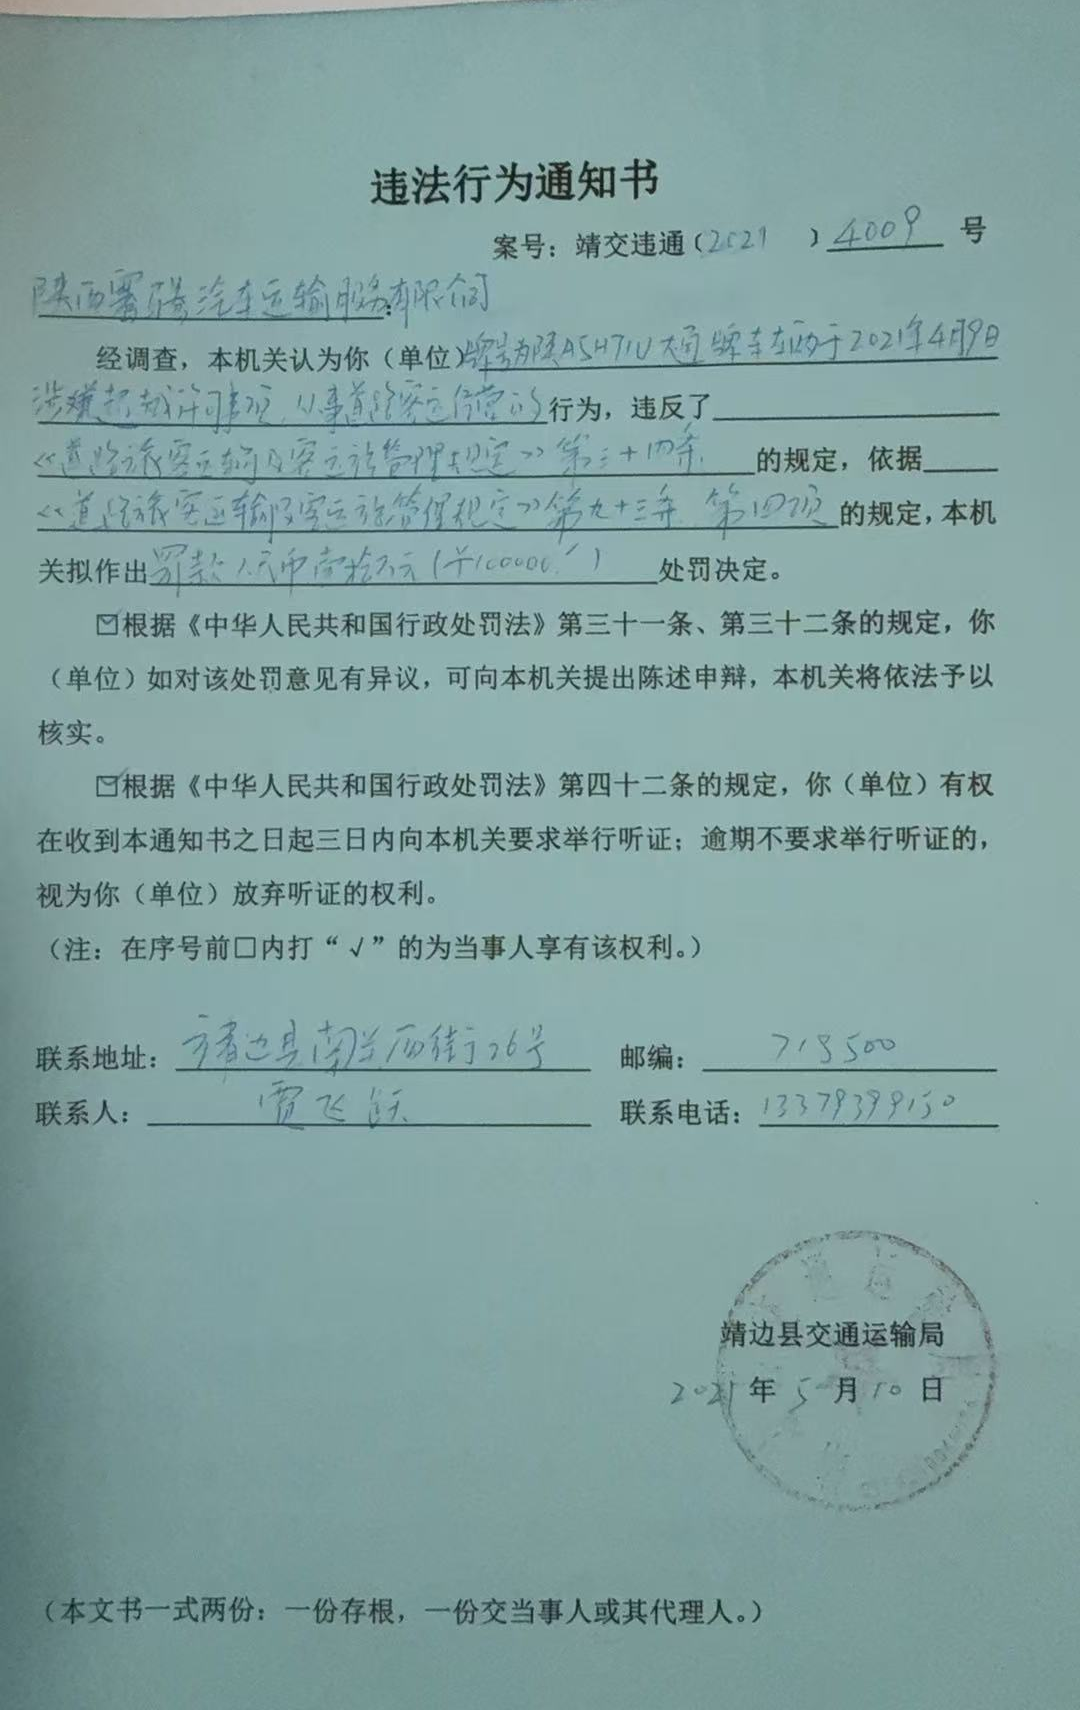 违法行为通知书
案号：靖交违通（2021 ）4009 号
陕西赛 汽车运输服务有限公司：
经调查，本机关认为你（单位）牌号为陕 大通牌车辆于2021年4月9日
涉嫌超越许可事项，从事道路客运经营的行为，违反了
《道路旅客运输及客运站管理规定》第三十四条 的规定，依据
《道路旅客运输及客运站管理规定》第九十三条 第四项的规定，本机
关拟作出罚款人民币壹拾万元（￥100000.） 处罚决定。
☑根据《中华人民共和国行政处罚法》第三十一条、第三十二条的规定，你
（单位）如对该处罚意见有异议，可向本机关提出陈述申辩，本机关将依法予以
核实。
☑根据《中华人民共和国行政处罚法》第四十二条的规定，你（单位）有权
在收到本通知书之日起三日内向本机关要求举行听证；逾期不要求举行听证的，
视为你（单位）放弃听证的权利。
（注：在序号前□内打“√”的为当事人享有该权利。）
联系地址：靖边县南关西街 26号 邮编：718500
联系人：贾飞跃 联系电话：13379399150
靖边县交通运输局
2021年5月10日
（本文书一式两份：一份存根，一份交当事人或其代理人。）